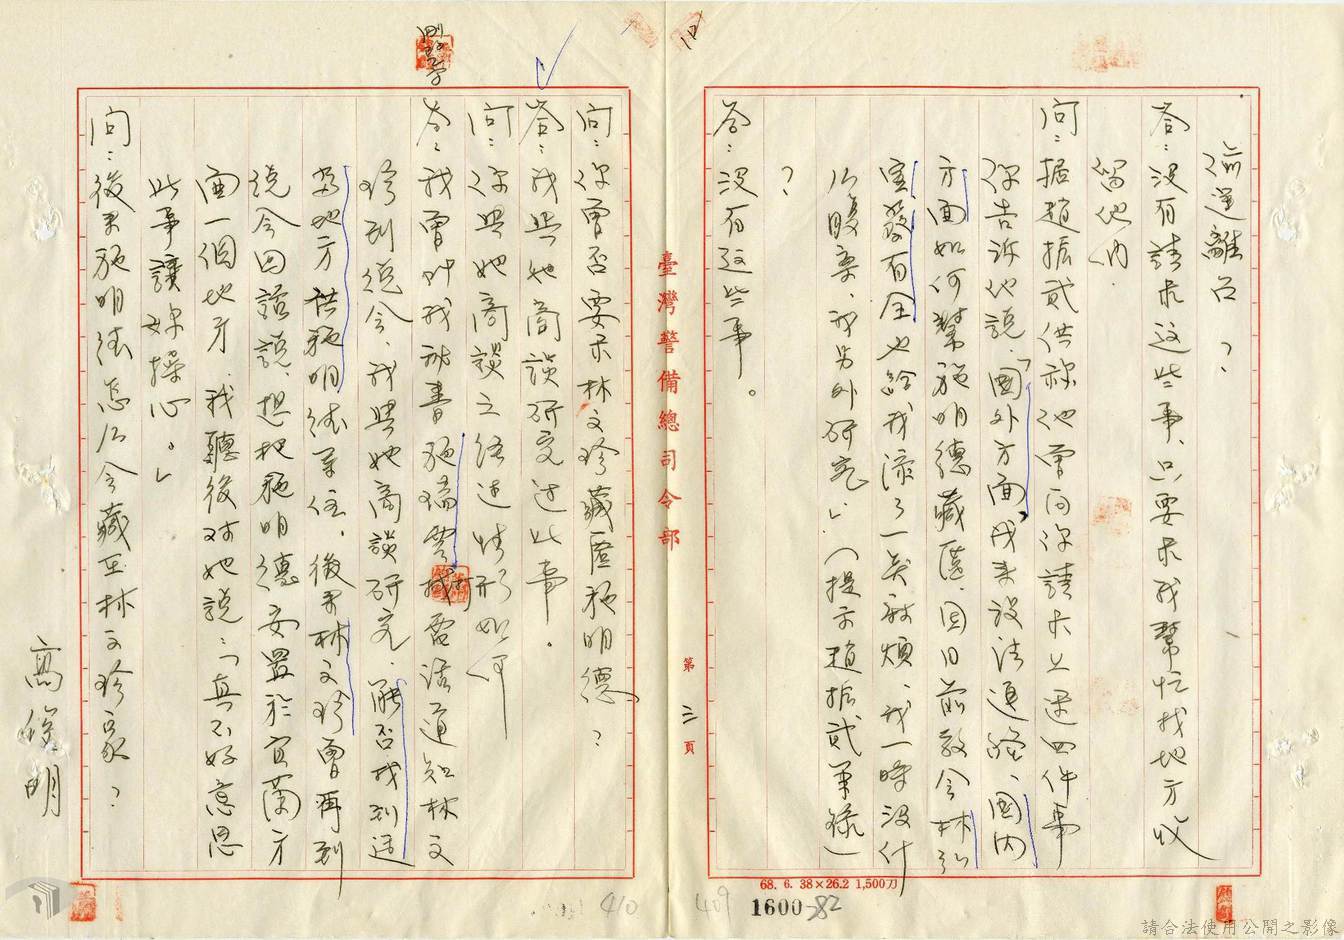 偷運離台？
答：没有請求这些事、只要求我幫忙找地方收
留他們
問：据趙振貳供称他曾向你請求上述四件事
你告诉他說「國外方面，我来设法連絡、國内
方面如何幫施明德藏匿、因日前教会林弘
宣發有全也給我添了一些麻煩、我一時没什
么腹案、我另外研究」。（提示趙振貳筆錄）
？
答：没有这些事。
臺灣警備總司令部
第三頁
問：你曾否要求林文珍藏匿施明德？
答：我與她商談研究过此事。
問：你與她商談之经过情形如何
答：我曾叫我秘書施瑞雲打電话通知林文
珍到总会、我與她商談研究、能否找到适
當地方供施明德居住、後来林文珍曾再到
总会回話說、想把施明德安置於宜蘭方
面一個地方、我聽後对她說：「真不好意思
此事讓妳操心。」
問：後来施明德怎么会藏至林文珍家？
高俊明
68. 6. 38×26.2 1,500刀
1600-82
409
410
請合法使用公開之影像